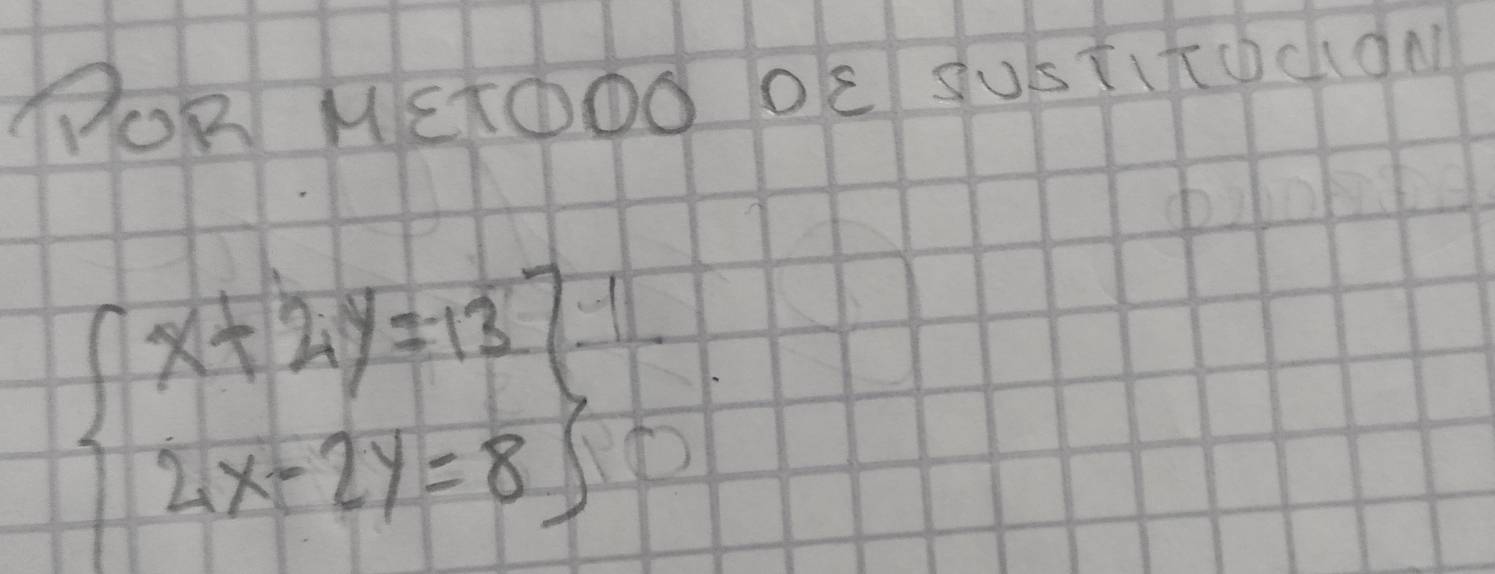 POR METODO DE SUSTITUCION
{x+2y=13} -1
{2x-2y=8}